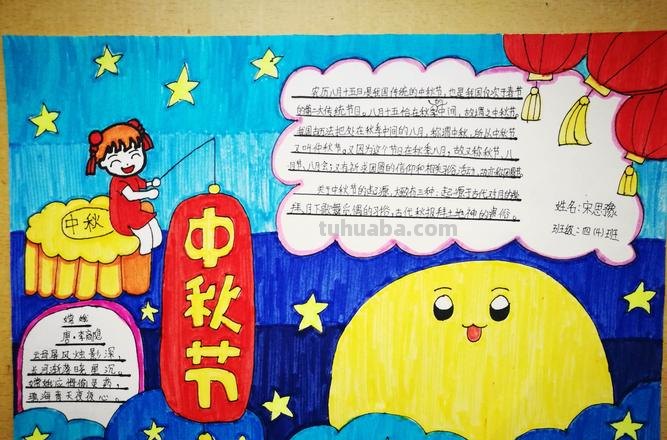 农历八月十五日是我国传统的中秋节,也是我国仅次于春节
的第二大传统节日。八月十五恰在秋季中间,故谓之中秋节。
我国古历法把处在秋季中间的八月,称谓中秋,所以中秋节
又叫仲秋节。又因为这个节日在秋季八月,故又称秋节、八
月节、八月会;又有祈求团圆的信仰和相关习俗活动,故亦称团圆节
关于中秋节的起源,大致有三种:起源于古代对月的崇
拜、月下歌舞觅偶的习俗,古代秋报拜土地神的遗俗。
姓名:宋思豫
班级:四(4)班
中秋
中秋节
tuhuaba.com
嫦娥
唐·李商隐
云母屏风烛影深,
长河渐落晓星沉。
嫦娥应悔偷灵药,
碧海青天夜夜心。